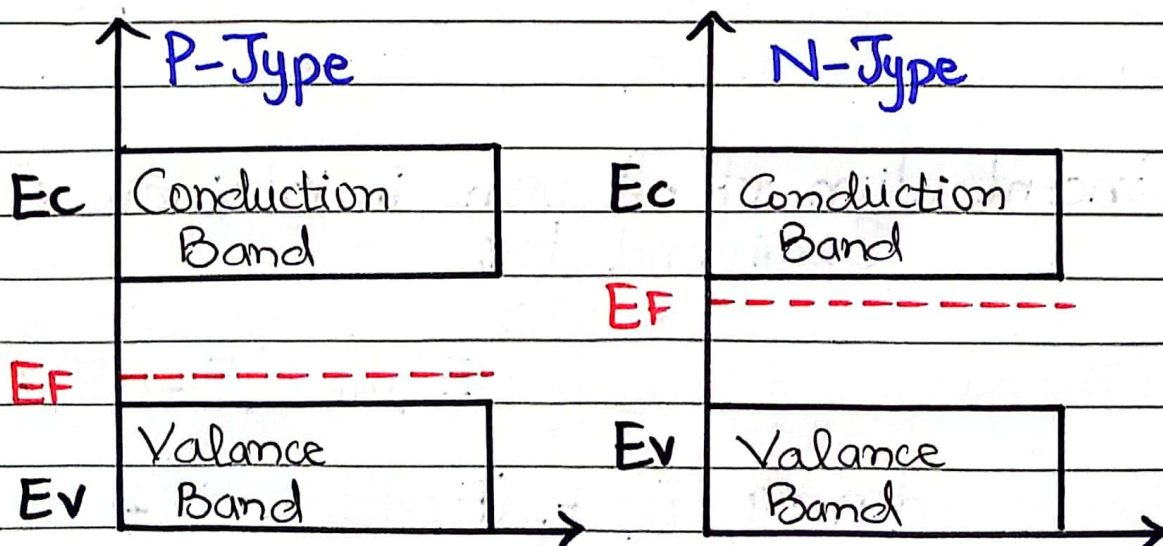 P-Type
Ec
Conduction
Band
EF
Valance
Band
Ev
N-Type
Ec
Conduction
Band
EF
Ev
Valance
Band